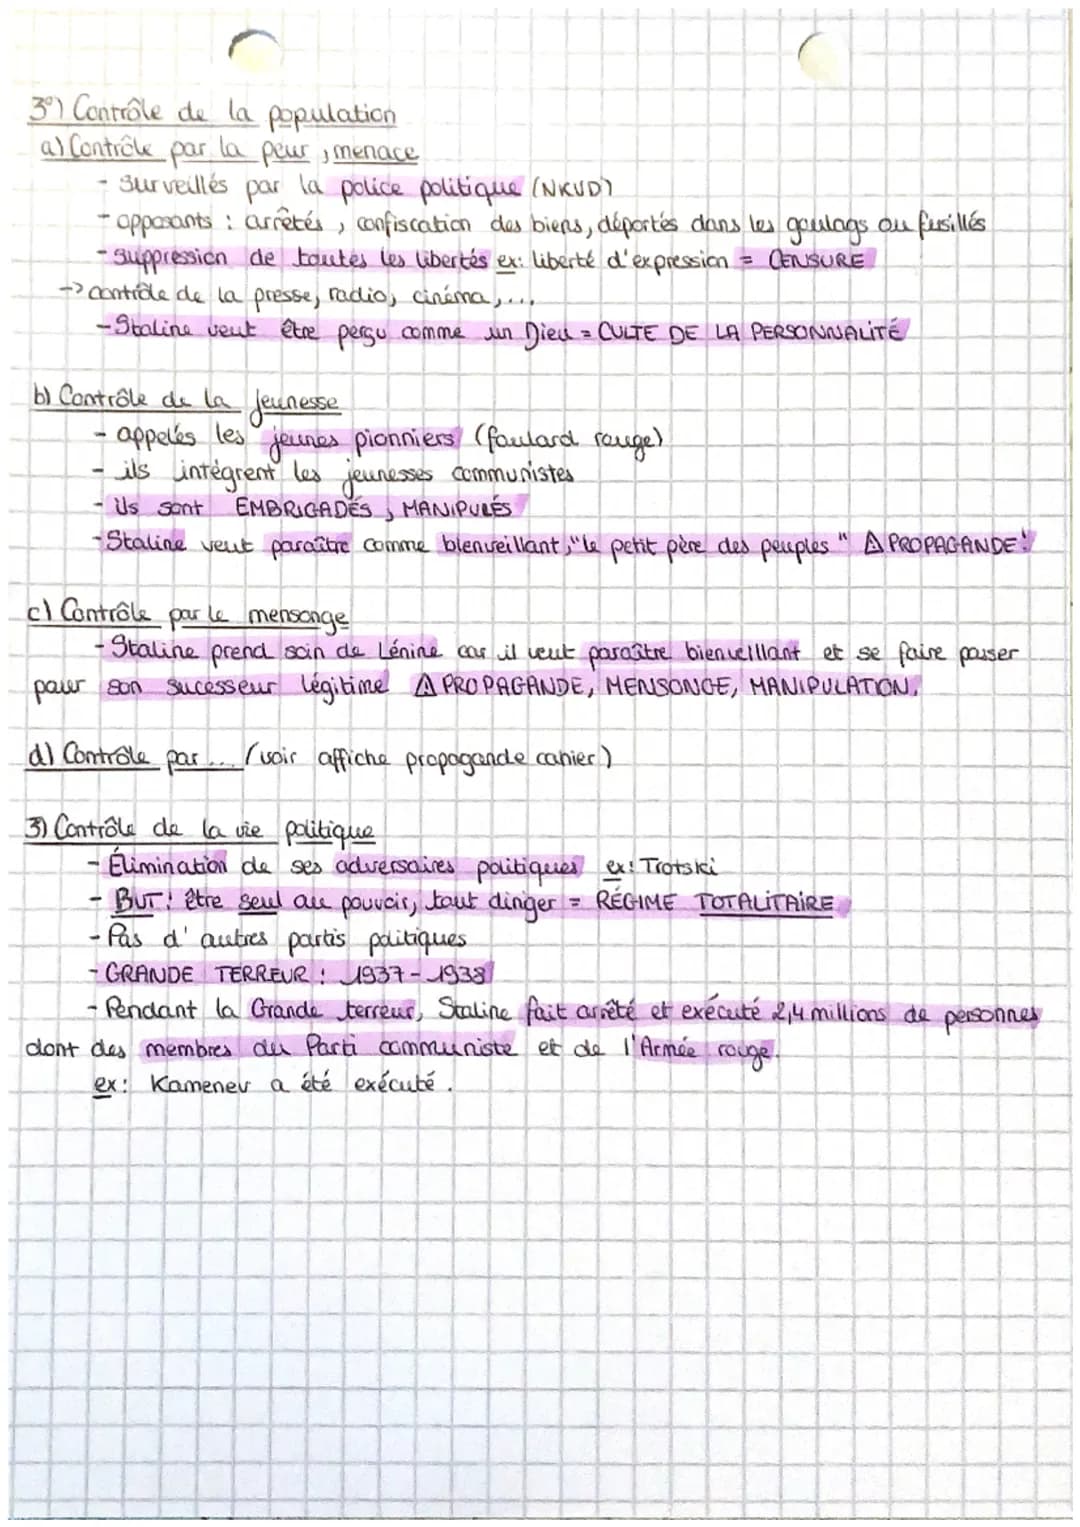 3°) Contrôle de la population
a) Contrôle par la peur, menace
- Surveillés par la police politique (NKVD)
- opposants : arrêtés, confiscation des biens, déportés dans les goulags ou fusillés
- suppression de toutes les libertés ex: liberté d'expression = CENSURE
-> contrôle de la presse, radio, cinéma,...
- Staline veut être perçu comme un Dieu = CULTE DE LA PERSONNALITÉ
b) Contrôle de la jeunesse
- appelés les jeunes pionniers (foulard rouge)
- ils intégrent les jeunesses communistes
- Ils sont EMBRIGADÉS, MANIPULÉS
- Staline veut paraître comme bienveillant, "le petit père des peuples" ⚠ PROPAGANDE!
c) Contrôle par le mensonge
- Staline prend soin de Lénine car il veut paraître bienveillant et se faire passer
pour son sucesseur légitime ⚠ PROPAGANDE, MENSONGE, MANIPULATION.
d) Contrôle par ... (voir affiche propagande cahier)
3) Contrôle de la vie politique
- Élimination de ses adversaires politiques ex: Trotski
- BUT: être seul au pouvoir, tout diriger = RÉGIME TOTALITAIRE
- Pas d'autres partis politiques
- GRANDE TERREUR : 1937-1938
- Pendant la Grande terreur, Staline fait arrêté et exécuté 2,4 millions de personnes
dont des membres du Parti communiste et de l'Armée rouge.
ex: Kamenev a été exécuté.